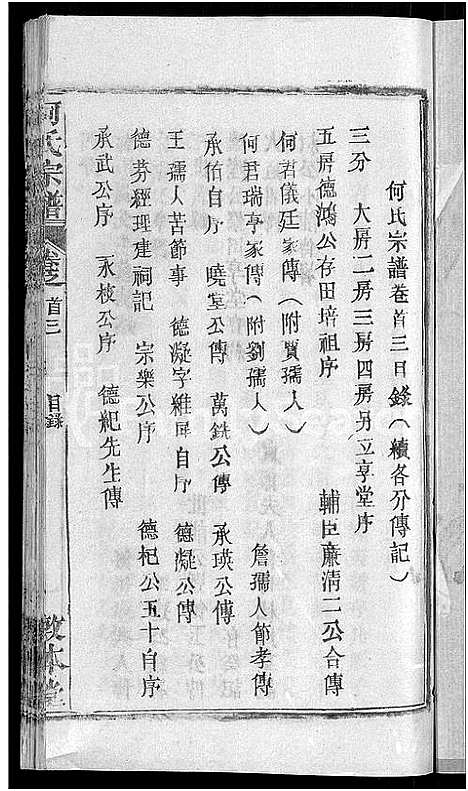 何氏宗譜卷首三目錄（續各分傳記）
三分　大房二房三房四房另立享堂序
五房德鴻公存田培祖序　輔臣廉清二公合傳
何君儀廷家傳（附賈孺人）
何君瑞亭家傳（附劉孺人）　詹孺人節孝傳
承佑自序　曉堂公傳　萬銑公傳　承瑛公傳
王孺人苦節事　德凝字維屏自序　德凝公傳
德芬經理建祠記　宗樂公序　德杞公五十自序
承武公序　永枝公序　德紀先生傳
何氏宗譜　卷之首三　目錄　敦本堂